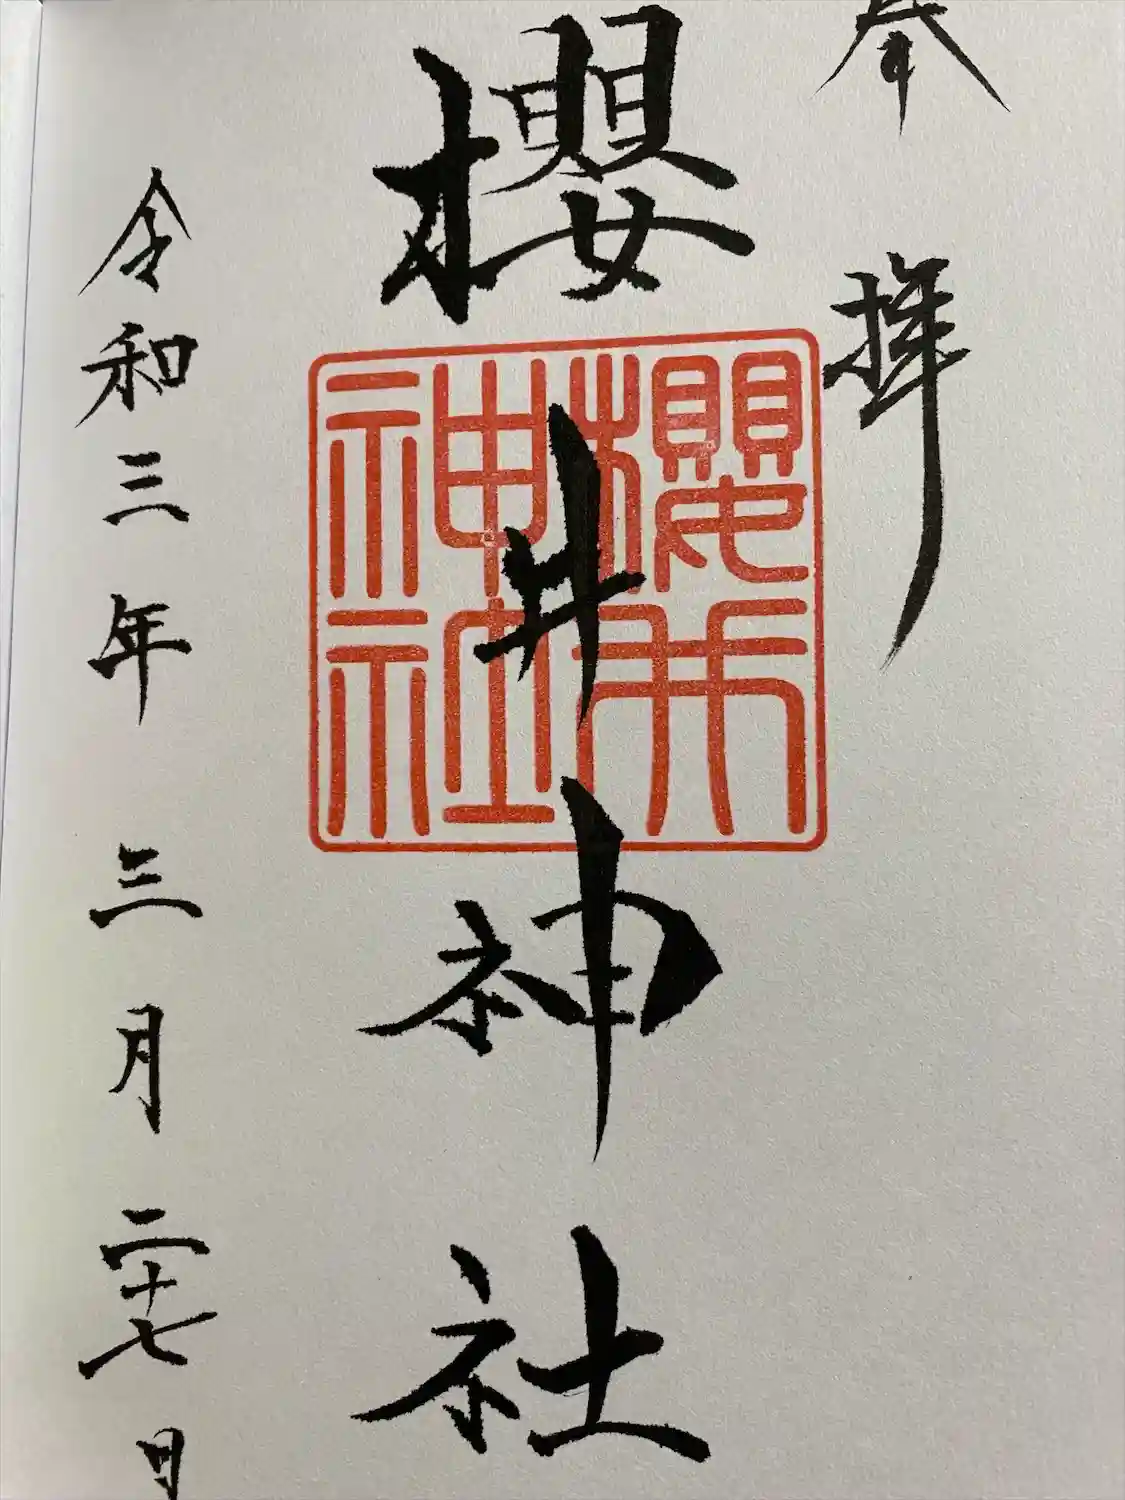 奉拝
櫻井神社
櫻井
神社
令和三年三月二十七日